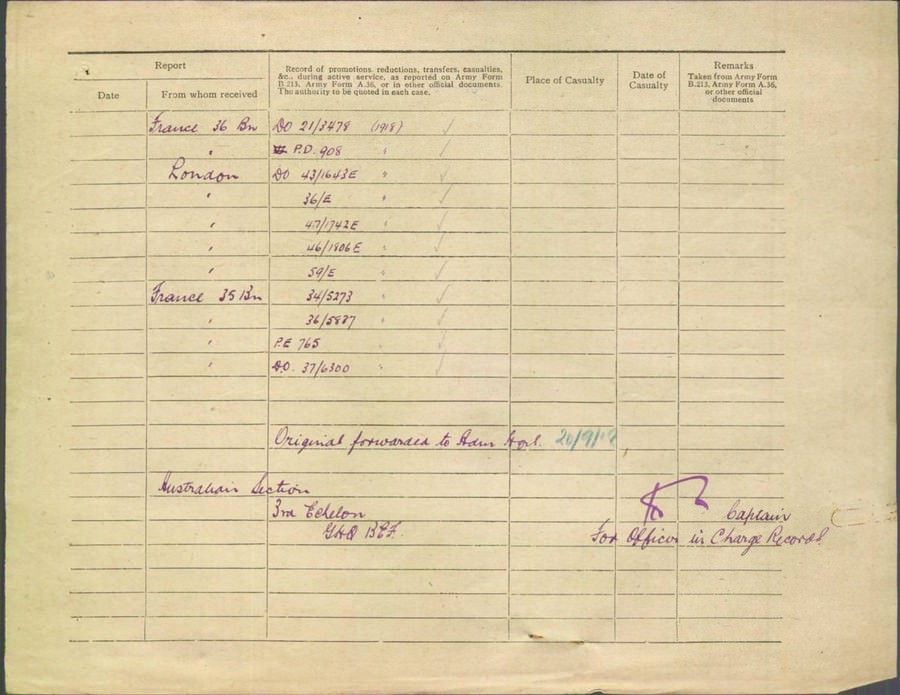 Report
Record of promotions, reductions, transfers, casualties,
&c., during active service, as reported on Army Form
B.213, Army Form A.36, or in other official documents.
The authority to be quoted in each case.
Place of Casualty
Date of
Casualty
Remarks
Taken from Army Form
B.213, Army Form A.36,
or other official
documents
Date
From whom received
France 36 Bn DO 21/3478 (1918)
" P.D. 908 "
London DO 43/1643E "
" 36/E "
" 47/1742E "
" 46/1806E "
" 59/E "
France 35 Bn 34/5273 "
" 36/5887 "
" P.E 765 "
" D.O. 37/6300 "
Original forwarded to Adm Hqrs. 20/9/
Australian Section
3rd Echelon
GHQ BEF.
Captain
For Officer in Charge Records